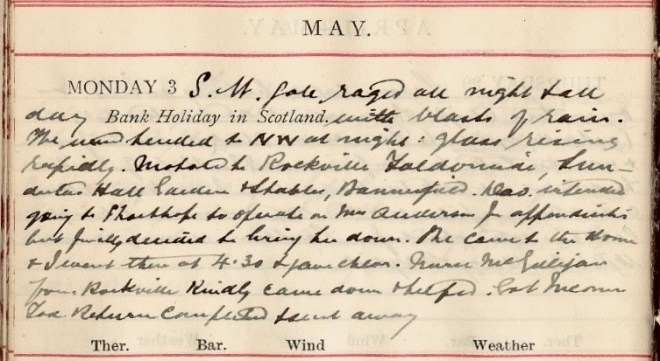 MAY.
MONDAY 3 S.W. Gale raged all night & all
day Bank Holiday in Scotland. with blasts of rain.
The wind headed to NW at night: glass rising
rapidly. to Rockville
Hall Gardens & Stables, Dav. intended
going to to operate on Mrs Anderson Jr appendicitis
but finally decided to bring her down. He came to the Home
& I went there at 4:30 & gave chlor. Nurse McGilligan
from Rockville kindly came down & helped. Got Income
Tax Return completed & sent away
Ther. Bar. Wind Weather